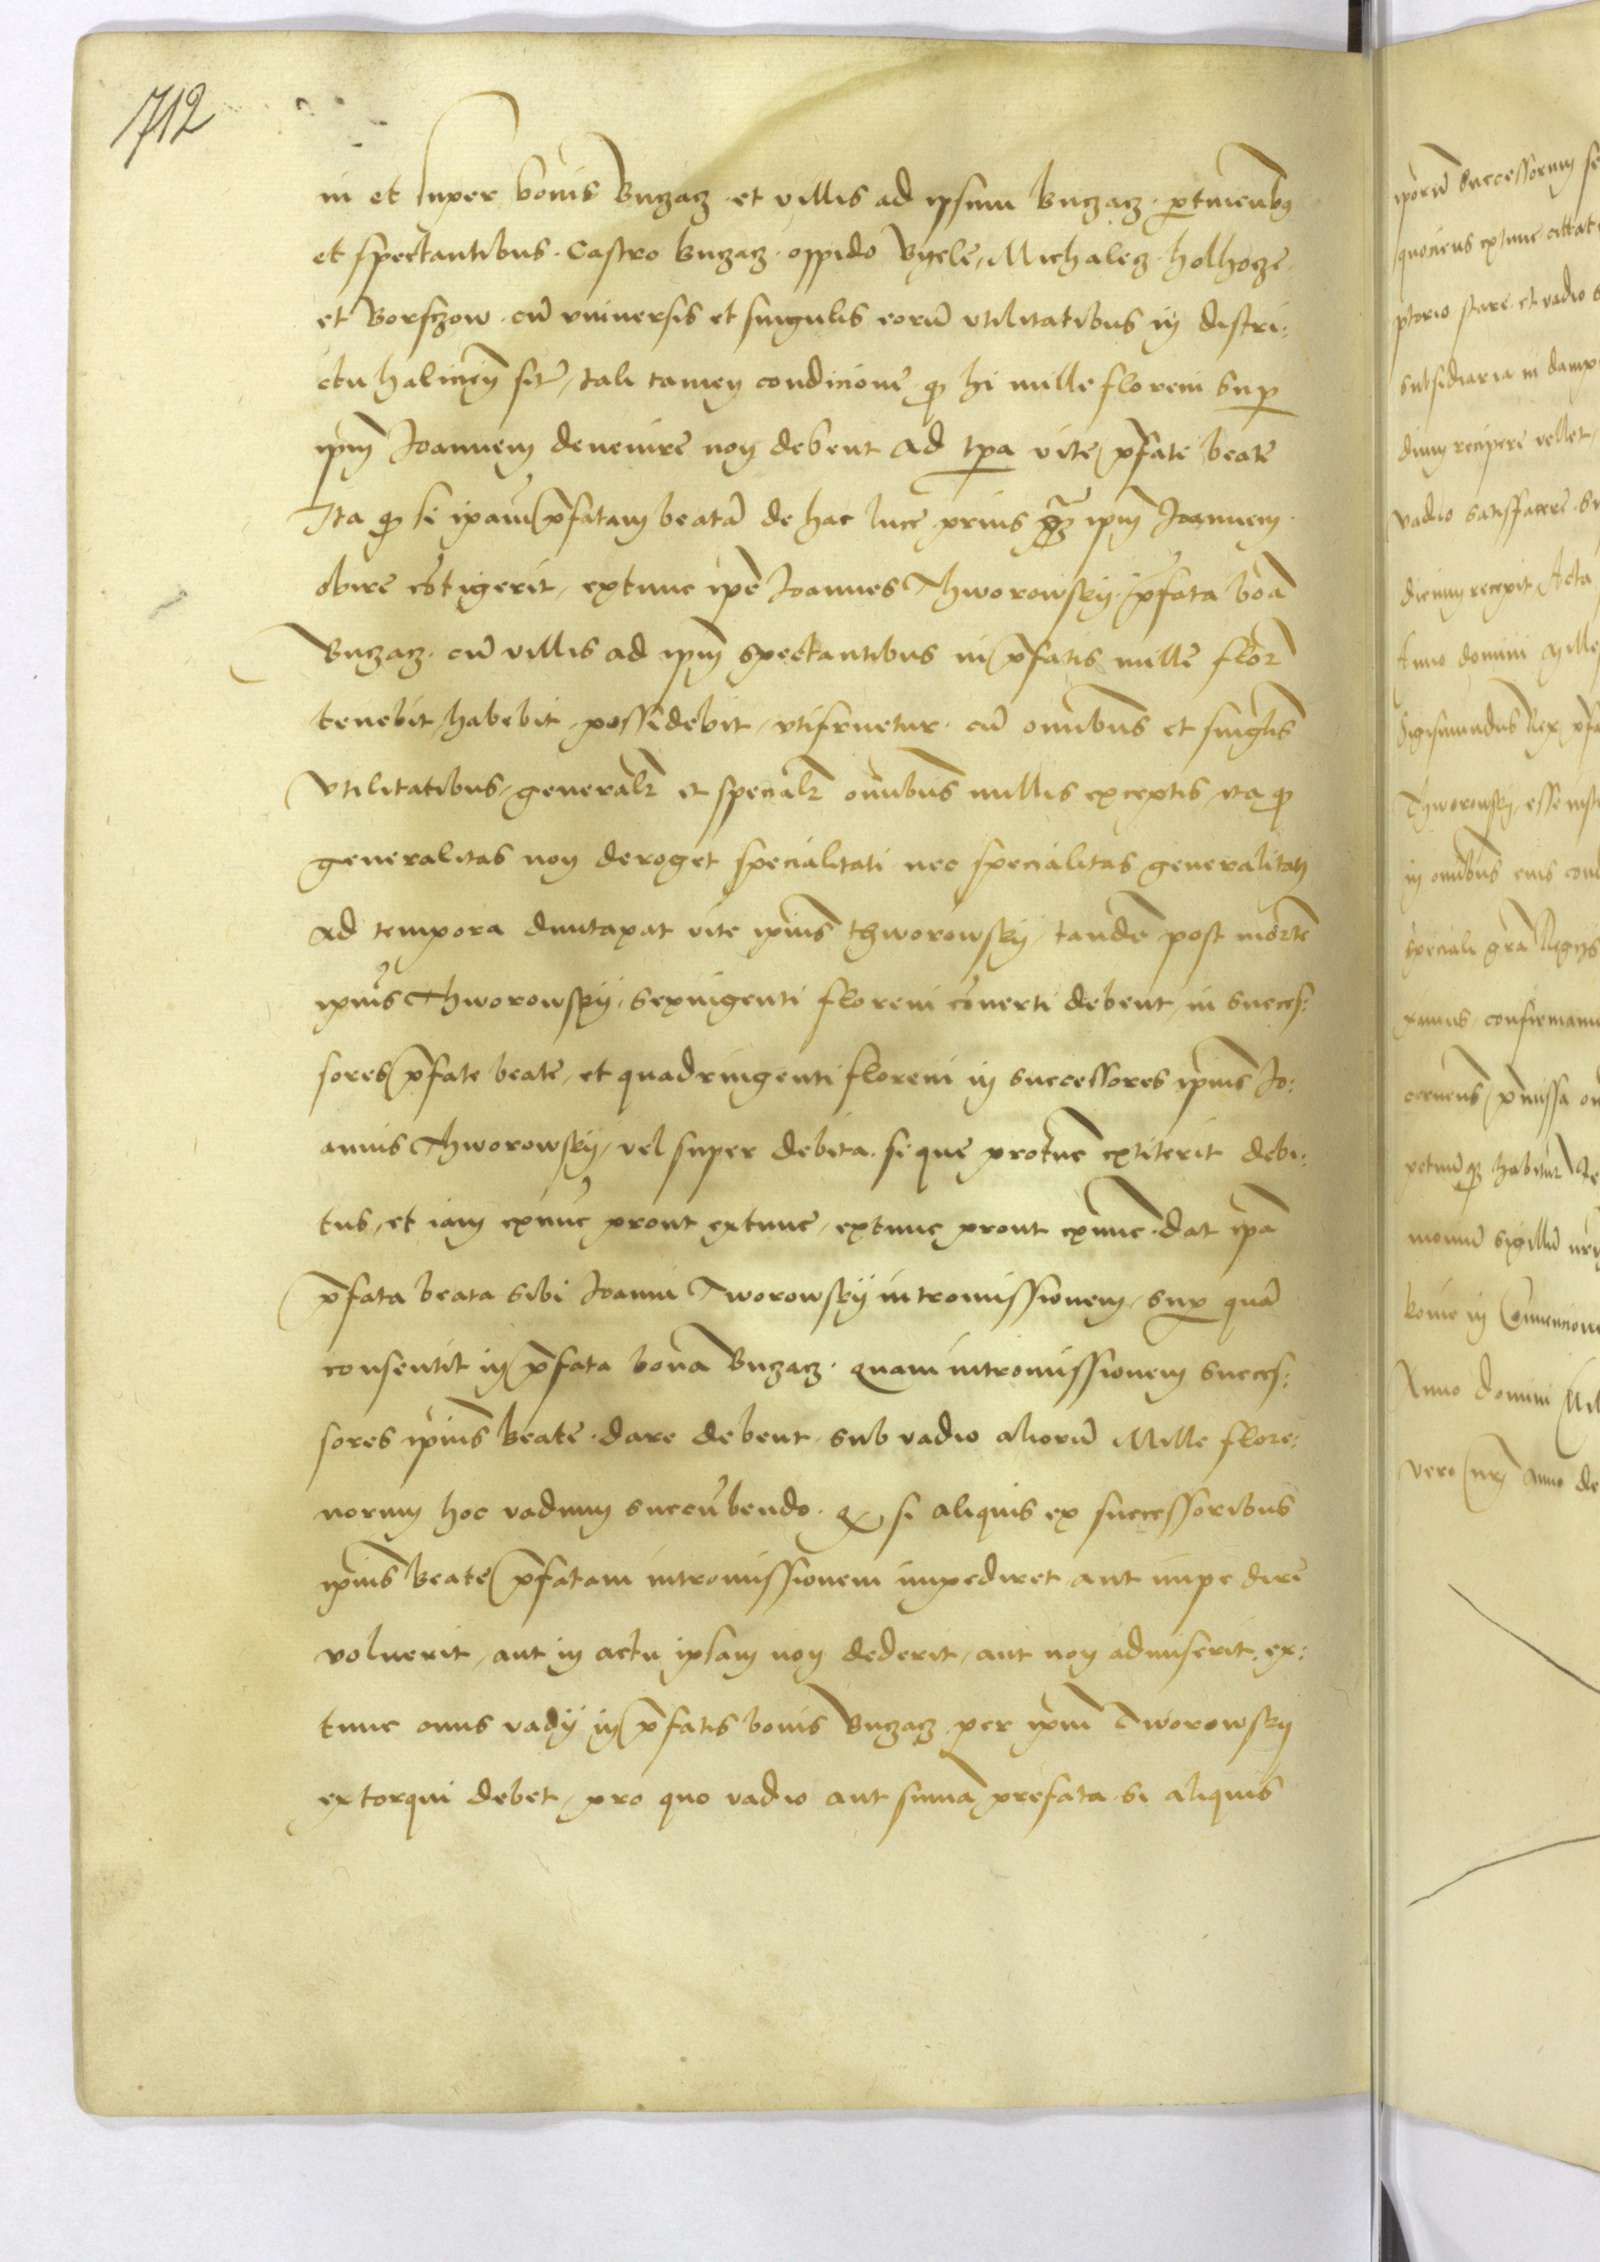 712
in et super bonis Buczacz et villis ad ipsum Buczacz pertinentibus
et spectantibus. Castro Buczacz. oppido Byele, Michalcz. holhocze.
et Borsczow. cũ vniuersis et singulis eorũ vtilitatibus in distri:
ctu halicien̄ sit̄, tali tamen condicione q̃ hi mille floreni sup̱
ip̄m Joannem deuenire non debent ad tp̱a vite p̄fate beate
Ita q̃ si ipam p̄fatam beatã de hac luce prius q̃ ip̄m Joannem.
obire cõtigerit, extunc ip̄e Joannes Thworowsky. p̄fata bõa
Buczacz. cũ villis ad ip̄m spectantibus in p̄fatis mille flor̄
tenebit, habebit, possidebit, vtifruetur. cũ om̄ibus et singl̄is
vtilitatibus, general̄r et special̄r om̄ibus nullis exceptis, ita q̃
generalitas non deroget specialitati nec specialitas generalitati
ad tempora duntaxat vite ipīus thworowsky, tandẽ post mortẽ
ipīus Thworowskij, sexingenti floreni cõuerti debent, in succes:
sores p̄fate beate, et quadringenti floreni in successores ipīus Jo:
annis Thworowsky, vel super debita. si que protunc extiterit debi:
tus, et iam exnũc prout extunc, extunc prout exnunc. dat ip̄a
p̄fata beata sibi Joanni Tworowskij intromissionem, sup̱ quã
consentit in p̄fata bona Buczacz. quam intromissionem succes:
sores ipīus beate. dare debent. sub vadio aliorũ Mille flore:
norum hoc vadium succũbendo. q̃ si aliquis ex successoribus
ipīus beate p̄fatam intromissionem impediret aut impedire
voluerit, aut in actu ipsam non dederit, aut non admiserit, ex:
tunc onus vadij in p̄fatis bonis Buczacz per ip̄m Tworowsky
extorqui debet, pro quo vadio aut sum̄a prefata. si aliquis
ip̄orũ Successorum
quociens extunc
ptorio stare et vadio
subsidiaria in damp
dium recipere vellet,
vadio satisfacere
dicium recepit Acta
Anno domini Mille
Sigismundus Rex
Thworowsky, esse
in om̄ibus eius
speciali gr̄a Regijs
confirmamus
p̄missa
habitur̄
sigillũ
in Conuencione
Anno domini
vero nr̄i Anno